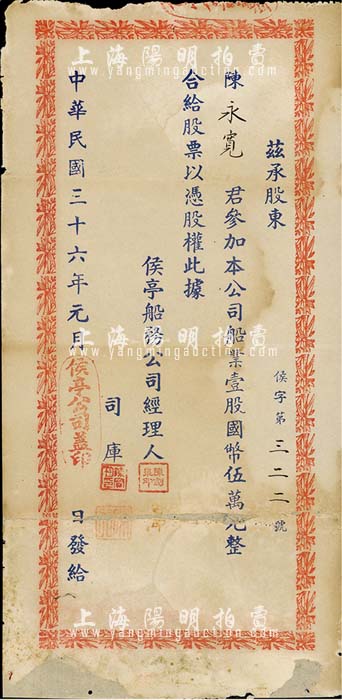 上海陽明拍賣
www.yangmingauction.com
茲承股東
陳永寬 君參加本公司船業壹股國幣伍萬元整
合給股票以憑股權此據
侯亭船務公司經理人
司庫
中華民國三十六年元月 日發給
侯字第三二二號
侯亭公司蓋印
上海陽明拍賣
www.yangmingauction.com
上海陽明拍賣
www.yangmingauction.com